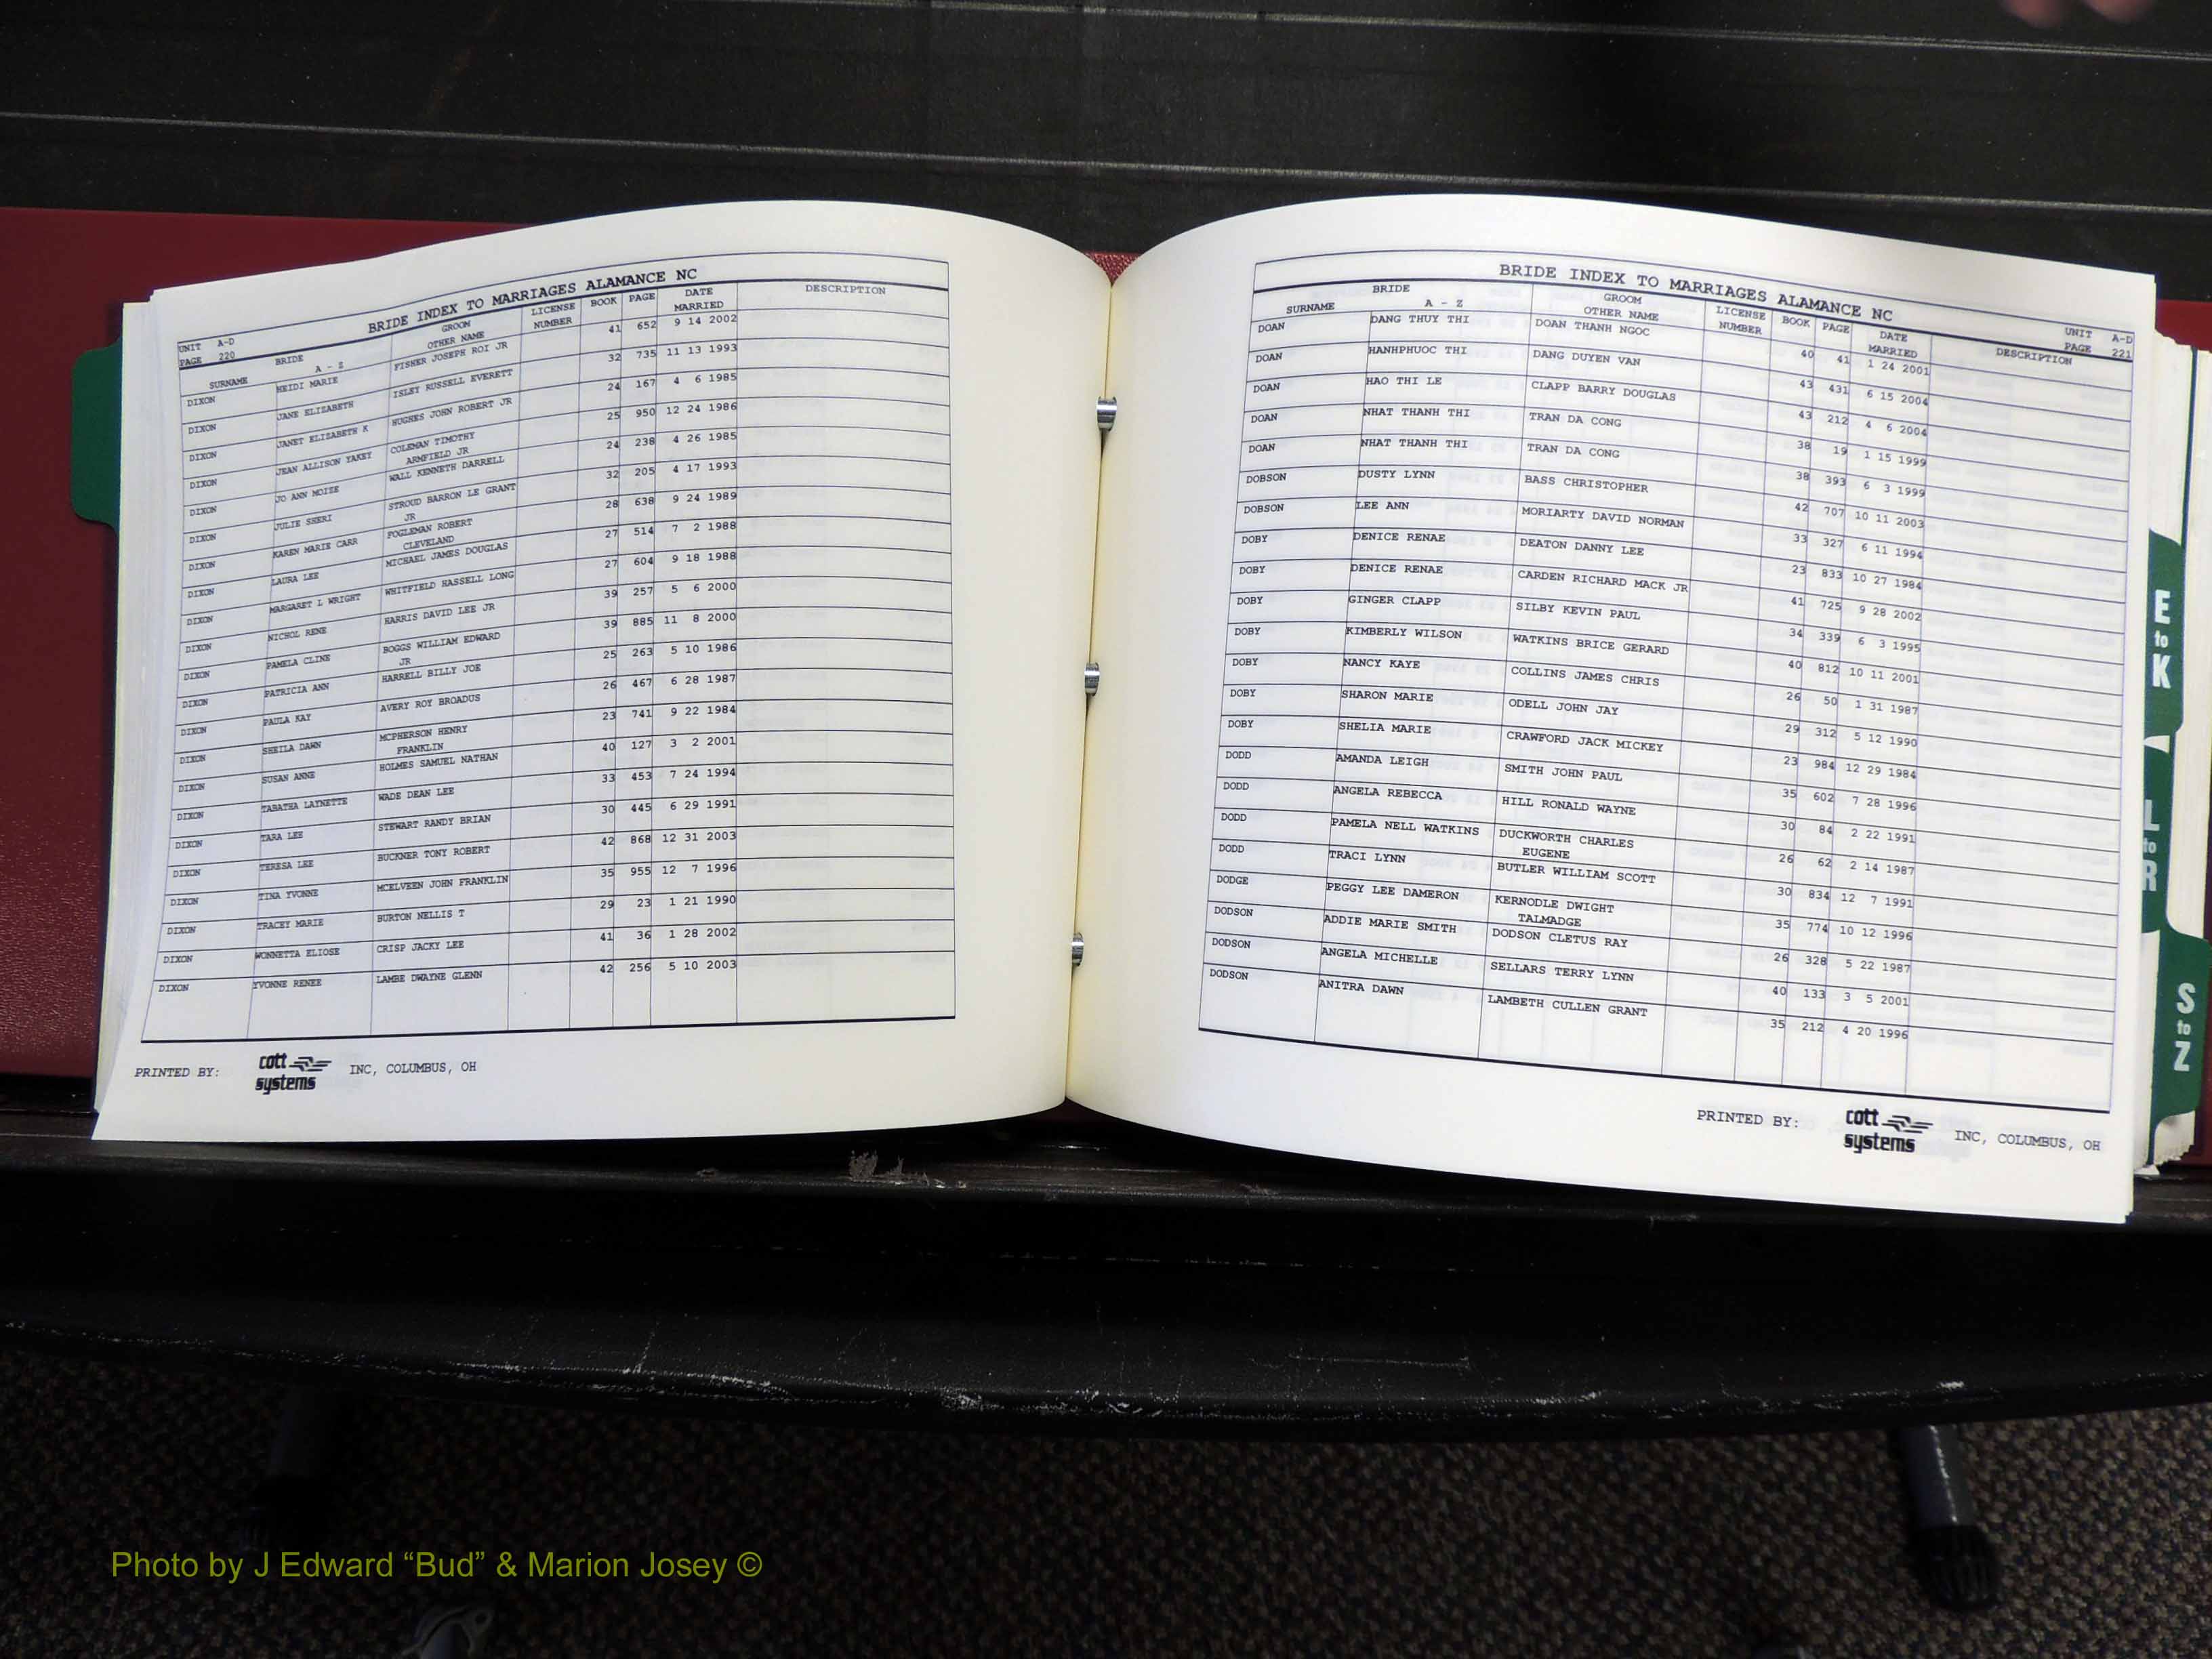 BRIDE INDEX TO MARRIAGES ALAMANCE NC
UNIT A-D
PAGE 220
BRIDE GROOM LICENSE BOOK PAGE DATE DESCRIPTION
SURNAME A - Z OTHER NAME NUMBER MARRIED
DIXON HEIDI MARIE FISHER JOSEPH ROI JR 41 652 9 14 2002
DIXON JANE ELIZABETH ISLEY RUSSELL EVERETT 32 735 11 13 1993
DIXON JANET ELIZABETH K HUGHES JOHN ROBERT JR 24 167 4 6 1985
DIXON JEAN ALLISON YAKEY COLEMAN TIMOTHY 25 950 12 24 1986
ARMFIELD JR
DIXON JO ANN MOIZE WALL KENNETH DARRELL 24 238 4 26 1985
DIXON JULIE SHERI STROUD BARRON LE GRANT 32 205 4 17 1993
JR
DIXON KAREN MARIE CARR FOGLEMAN ROBERT 28 638 9 24 1989
CLEVELAND
DIXON LAURA LEE MICHAEL JAMES DOUGLAS 27 514 7 2 1988
DIXON MARGARET L WRIGHT WHITFIELD HASSELL LONG 27 604 9 18 1988
DIXON NICHOL RENE HARRIS DAVID LEE JR 39 257 5 6 2000
DIXON PAMELA CLINE BOGGS WILLIAM EDWARD 39 885 11 8 2000
JR
DIXON PATRICIA ANN HARRELL BILLY JOE 25 263 5 10 1986
DIXON PAULA KAY AVERY ROY BROADUS 26 467 6 28 1987
DIXON SHEILA DAWN MCPHERSON HENRY 23 741 9 22 1984
FRANKLIN
DIXON SUSAN ANNE HOLMES SAMUEL NATHAN 40 127 3 2 2001
DIXON TABATHA LAYNETTE WADE DEAN LEE 33 453 7 24 1994
DIXON TARA LEE STEWART RANDY BRIAN 30 445 6 29 1991
DIXON TERESA LEE BUCKNER TONY ROBERT 42 868 12 31 2003
DIXON TINA YVONNE MCELVEEN JOHN FRANKLIN 35 955 12 7 1996
DIXON TRACEY MARIE BURTON NELLIS T 29 23 1 21 1990
DIXON WONNETTA ELIOSE CRISP JACKY LEE 41 36 1 28 2002
DIXON YVONNE RENEE LAMBE DWAYNE GLENN 42 256 5 10 2003
PRINTED BY: cott systems INC, COLUMBUS, OH
BRIDE INDEX TO MARRIAGES ALAMANCE NC
UNIT A-D
PAGE 221
BRIDE GROOM LICENSE BOOK PAGE DATE DESCRIPTION
SURNAME A - Z OTHER NAME NUMBER MARRIED
DOAN DANG THUY THI DOAN THANH NGOC 40 41 1 24 2001
DOAN HANHPHUOC THI DANG DUYEN VAN 43 431 6 15 2004
DOAN HAO THI LE CLAPP BARRY DOUGLAS 43 212 4 6 2004
DOAN NHAT THANH THI TRAN DA CONG 38 19 1 15 1999
DOAN NHAT THANH THI TRAN DA CONG 38 393 6 3 1999
DOBSON DUSTY LYNN BASS CHRISTOPHER 42 707 10 11 2003
DOBSON LEE ANN MORIARTY DAVID NORMAN 33 327 6 11 1994
DOBY DENICE RENAE DEATON DANNY LEE 23 833 10 27 1984
DOBY DENICE RENAE CARDEN RICHARD MACK JR 41 725 9 28 2002
DOBY GINGER CLAPP SILBY KEVIN PAUL 34 339 6 3 1995
DOBY KIMBERLY WILSON WATKINS BRICE GERARD 40 812 10 11 2001
DOBY NANCY KAYE COLLINS JAMES CHRIS 26 50 1 31 1987
DOBY SHARON MARIE ODELL JOHN JAY 29 312 5 12 1990
DOBY SHELIA MARIE CRAWFORD JACK MICKEY 23 984 12 29 1984
DODD AMANDA LEIGH SMITH JOHN PAUL 35 602 7 28 1996
DODD ANGELA REBECCA HILL RONALD WAYNE 30 84 2 22 1991
DODD PAMELA NELL WATKINS DUCKWORTH CHARLES 26 62 2 14 1987
EUGENE
DODD TRACI LYNN BUTLER WILLIAM SCOTT 30 834 12 7 1991
DODGE PEGGY LEE DAMERON KERNODLE DWIGHT 35 774 10 12 1996
TALMADGE
DODSON ADDIE MARIE SMITH DODSON CLETUS RAY 26 328 5 22 1987
DODSON ANGELA MICHELLE SELLARS TERRY LYNN 40 133 3 5 2001
DODSON ANITRA DAWN LAMBETH CULLEN GRANT 35 212 4 20 1996
PRINTED BY: cott systems INC, COLUMBUS, OH
E to K
L to R
S to Z
Photo by J Edward “Bud” & Marion Josey ©